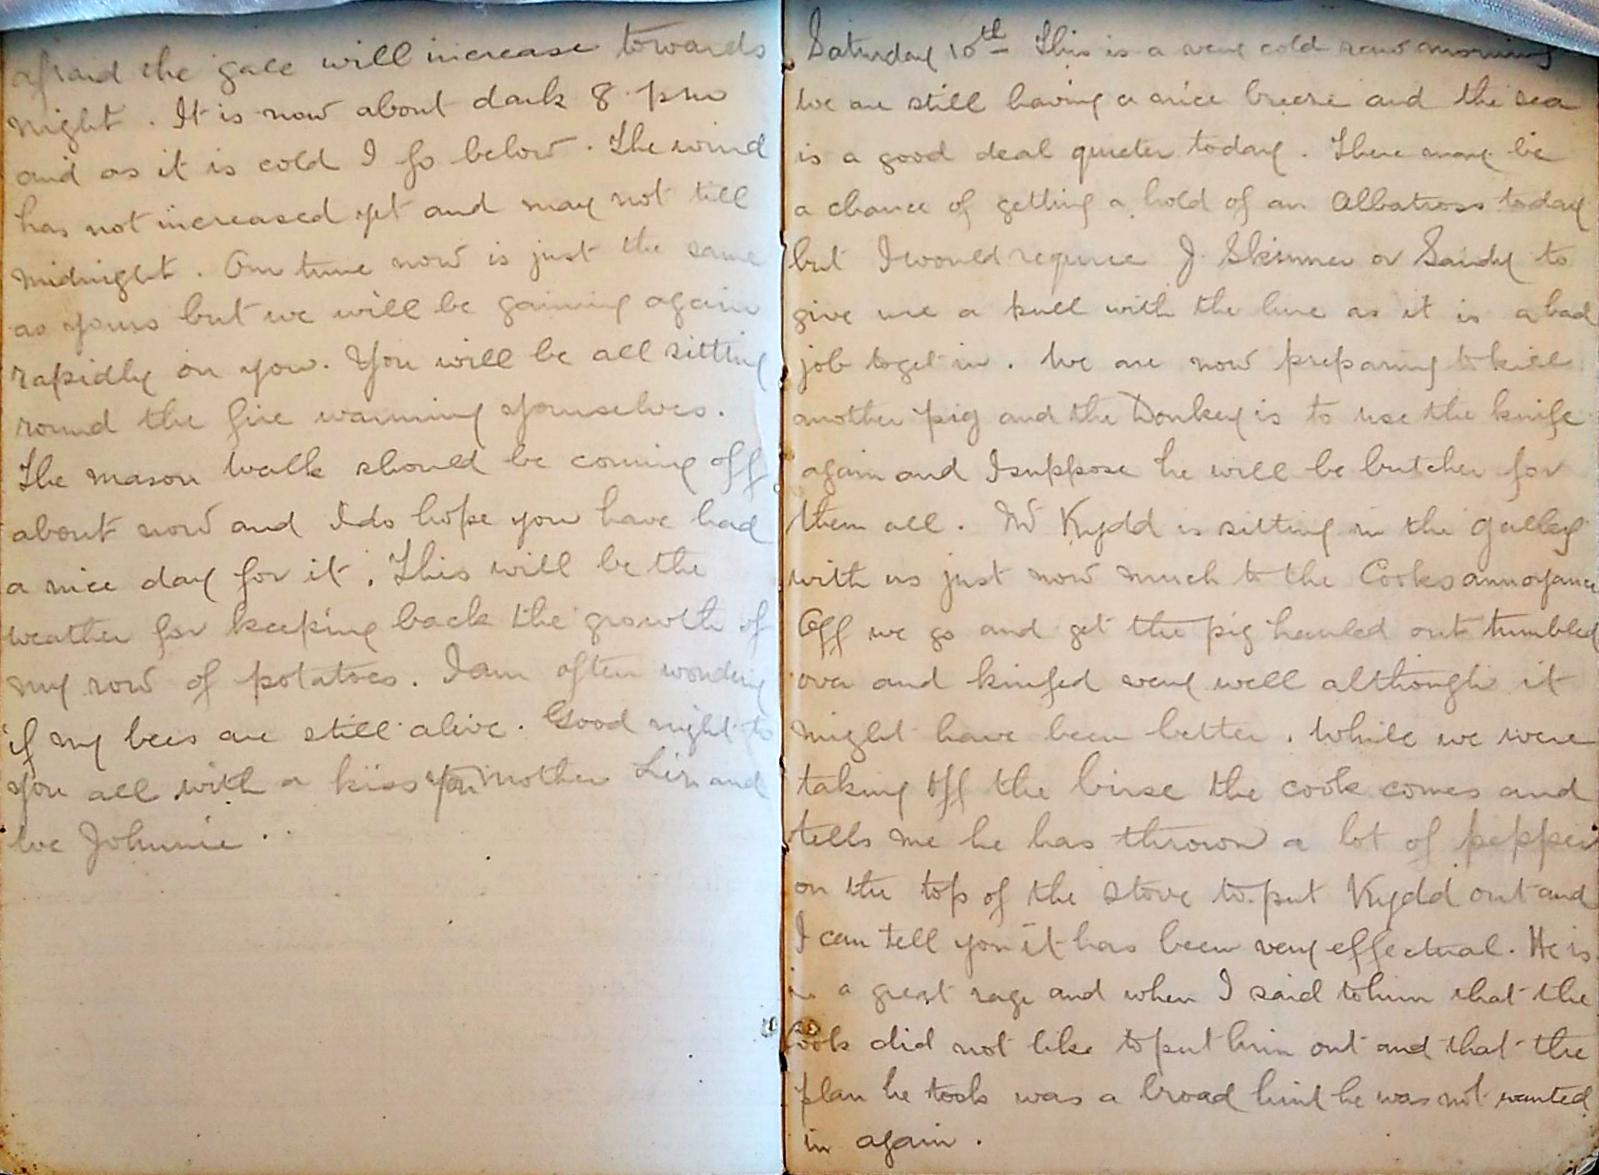 afraid the gale will increase towards
night. It is now about dark 8 pm
and as it is cold I go below. The wind
has not increased yet and may not till
midnight. Our time now is just the same
as yours but we will be gaining again
rapidly on you. You will be all sitting
round the fire warming yourselves.
The mason walk should be coming off
about now and I do hope you have had
a nice day for it. This will be the
weather for keeping back the growth of
my row of potatoes. I am often wondring
if my bees are still alive. Good night to
you all with a kiss for Mother Liz and
wee Johnnie
Saturday 10th This is a very cold raw morning
We are still having a nice breeze and the sea
is a good deal quieter today. There may be
a chance of getting a hold of an Albatross today
but I would require J. Skinner or Sandy to
give me a pull with the line as it is a bad
job to get in. We are now preparing to kill
another pig and the Donkey is to use the knife
again and I suppose he will be butcher for
them all. Mr Kydd is sitting in the galley
with us just now much to the Cooks annoyance
Off we go and get the pig hauled out tumbled
over and knifed very well although it
might have been better. While we were
taking off the birse the cook comes and
tells me he has thrown a lot of pepper
on the top of the stove to put Kydd out and
I can tell you it has been very effectual. He is
in a great rage and when I said to him that the
Cook did not like to put him out and that the
plan he took was a broad hint he was not wanted
in again.